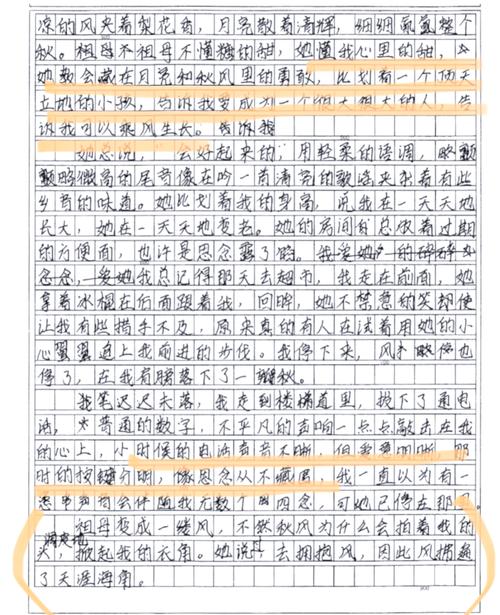 凉的风夹着梨花香,月亮散着清辉,细细氤氲整个
秋。祖母不祖母不懂糖的甜,她懂我心里的甜,
她教会藏在月亮和秋风里的勇敢,比划着一个
立她的小孩,告诉我要成为一个很大很大的人,告
诉我可以乘风生长。告诉我
她总说,一会好起来的;用轻柔的语调,略
略微高的尾音像在吟一首清亮的歌谣夹杂着有些
乡音的味道。她比划着我的身高,而我在一天天地
长大,她在一天天地变老。她的房间有总放着过期
的方便面,也许是思念
念念,我总记得那天去超市,我走在前面,她
拿着冰棍在后面跟着我,回眸,她不禁意的笑却使
让我有些措手不及,原来真的有人在试着用她的小
心翼翼追上我前进的步伐。我停下来,风也
停了,在我肩膀落下了一秋。
我笔迟迟未落,我走到楼梯道里,拨下了通电
话,普通的数字,不平凡的声响一点点敲击在我
的心上,小时候的电话声音不响,但爱意响,那
时的按键分明,像思念从不藏匿。我一直以为有一
声音会伴随我无数个思念,可她已停在那
祖母变成一缕风,不然秋风为什么会拍着我的
头,掀起我的衣角。她说,去拥抱风,因此风拥
了天涯海角。